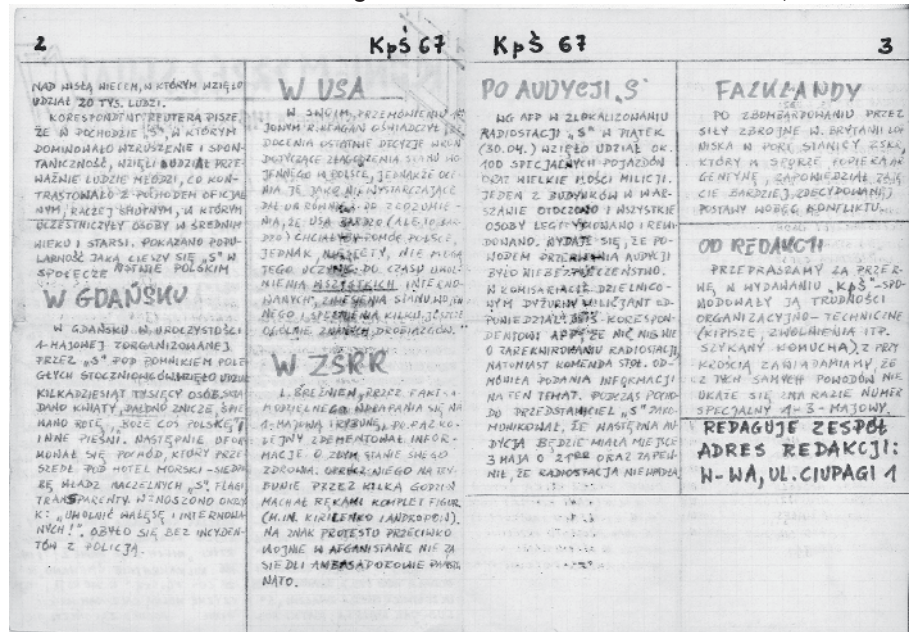 2
KpŚ 67
NAD WISŁĄ WIECEM, W KTÓRYM WZIĘŁO
UDZIAŁ 20 TYS. LUDZI.
KORESPONDENT REUTERA PISZE,
ŻE W POCHODZIE „S", W KTÓRYM
DOMINOWAŁO WZRUSZENIE I SPON-
TANICZNOŚĆ, WZIĘLI UDZIAŁ PRZE-
WAŻNIE LUDZIE MŁODZI, CO KON-
TRASTOWAŁO Z POCHODEM OFICJAL
NYM, RACZEJ SMUTNYM, W KTÓRYM
UCZESTNICZYŁY OSOBY W ŚREDNIM
WIEKU I STARSI. POKAZANO POPU-
LARNOŚĆ JAKĄ CIESZY SIĘ „S" W
SPOŁECZEŃSTWIE POLSKIM
W GDAŃSKU
W GDAŃSKU W UROCZYSTOŚCI
1-MAJOWEJ ZORGANIZOWANEJ
PRZEZ „S" POD POMNIKIEM POLE
GŁYCH STOCZNIOWCÓW WZIĘŁO UDZIAŁ
KILKADZIESIĄT TYSIĘCY OSÓB. SKŁA
DANO KWIATY, PALONO ZNICZE, ŚPIE
WANO ROTĘ, „BOŻE COŚ POLSKĘ" I
INNE PIEŚNI. NASTĘPNIE UFOR
MOWAŁ SIĘ POCHÓD, KTÓRY PRZE
SZEDŁ POD HOTEL MORSKI - SIEDZI
BĘ WŁADZ NACZELNYCH „S". FLAGI
TRANSPARENTY. WZNOSZONO OKRZY
K: „UWOLNIĆ WAŁĘSĘ I INTERNOWA
NYCH!". OBYŁO SIĘ BEZ INCYDEN-
TÓW Z POLICJĄ.
W USA
W SWOIM PRZEMÓWIENIU
R. REAGAN OŚWIADCZYŁ, ŻE
DOCENIA OSTATNIE DECYZJE WRON
DOTYCZĄCE ZŁAGODZENIA STANU WO
JENNEGO W POLSCE, JEDNAKŻE OCE-
NIA JE JAKO NIEWYSTARCZAJĄCE
DAŁ ON RÓWNIEŻ DO ZROZUMIE-
NIA, ŻE USA BARDZO (ALE TO BAR-
DZO) CHCIAŁYBY POMÓC POLSCE,
JEDNAK, NIESTETY, NIE MOGĄ
TEGO UCZYNIĆ DO CZASU UWOL-
NIENIA WSZYSTKICH INTERNO-
WANYCH, ZNIESIENIA STANU WOJEN
NEGO I SPEŁNIENIA KILKU JESZCZE
OGÓLNIE ZNANYCH DROBIAZGÓW."
W ZSRR
L. BREŻNIEW, PRZEZ FAKT
WDRAPANIA SIĘ NA
1-MAJOWĄ TRYBUNĘ, PO RAZ KO-
LEJNY ZDEMENTOWAŁ INFOR-
MACJE O ZŁYM STANIE SWEGO
ZDROWIA. OPRÓCZ NIEGO NA TRY-
BUNIE PRZEZ KILKA GODZIN
MACHAŁ RĘKAMI KOMPLET FIGUR
(M.IN. KIRILENKO I ANDROPOW).
NA ZNAK PROTESTU PRZECIWKO
WOJNIE W AFGANISTANIE NIE ZA
SIEDLI AMBASADOROWIE PAŃSTW
NATO.
KpŚ 67
3
PO AUDYCJI „S"
WG AFP W ZLOKALIZOWANIU
RADIOSTACJI „S" W PIĄTEK
(30.04.) WZIĘŁO UDZIAŁ OK.
100 SPECJALNYCH POJAZDÓW
ORAZ WIELKIE ILOŚCI MILICJI.
JEDEN Z BUDYNKÓW W WAR-
SZAWIE OTOCZONO I WSZYSTKIE
OSOBY LEGITYMOWANO I REWI-
DOWANO. WYDAJE SIĘ, ŻE PO-
WODEM PRZERWANIA AUDYCJI
BYŁO NIEBEZPIECZEŃSTWO.
W KOMISARIACIE DZIELNICO-
WYM DYŻURNY MILICJANT OD-
POWIEDZIAŁ KORESPON-
DENTOWI AFP, ŻE NIC NIE WIE
O ZAREKWIROWANIU RADIOSTACJI,
NATOMIAST KOMENDA STOŁ. OD-
MÓWIŁA PODANIA INFORMACJI
NA TEN TEMAT. PODCZAS POCHO-
DU PRZEDSTAWICIEL „S" ZAKO-
MUNIKOWAŁ, ŻE NASTĘPNA AU-
DYCJA BĘDZIE MIAŁA MIEJSCE
3 MAJA O 21⁰⁰ ORAZ ZAPEW-
NIŁ, ŻE RADIOSTACJA NIE WPADŁA
FALKLANDY
PO ZBOMBARDOWANIU PRZEZ
SIŁY ZBROJNE W. BRYTANII LOT
NISKA W PORT STANLEY ZSRR,
KTÓRY W SPORZE POPIERA AR
GENTYNĘ, ZAPOWIEDZIAŁ ZAJĘ
CIE BARDZIEJ ZDECYDOWANEJ
POSTAWY WOBEC KONFLIKTU.
OD REDAKCJI
PRZEPRASZAMY ZA PRZER-
WĘ, W WYDAWANIU „KpŚ"-SPO-
WODOWAŁY JĄ TRUDNOŚCI
ORGANIZACYJNO-TECHNICZNE
(KIPISZE, ZWOLNIENIA ITP.
SZYKANY KOMUCHA). Z PRZY
KROŚCIĄ ZAWIADAMIAMY, ŻE
Z TYCH SAMYCH POWODÓW NIE
UKAŻE SIĘ NA RAZIE NUMER
SPECJALNY 1-3-MAJOWY.
REDAGUJE ZESPÓŁ
ADRES REDAKCJI:
W-WA, UL. CIUPAGI 1